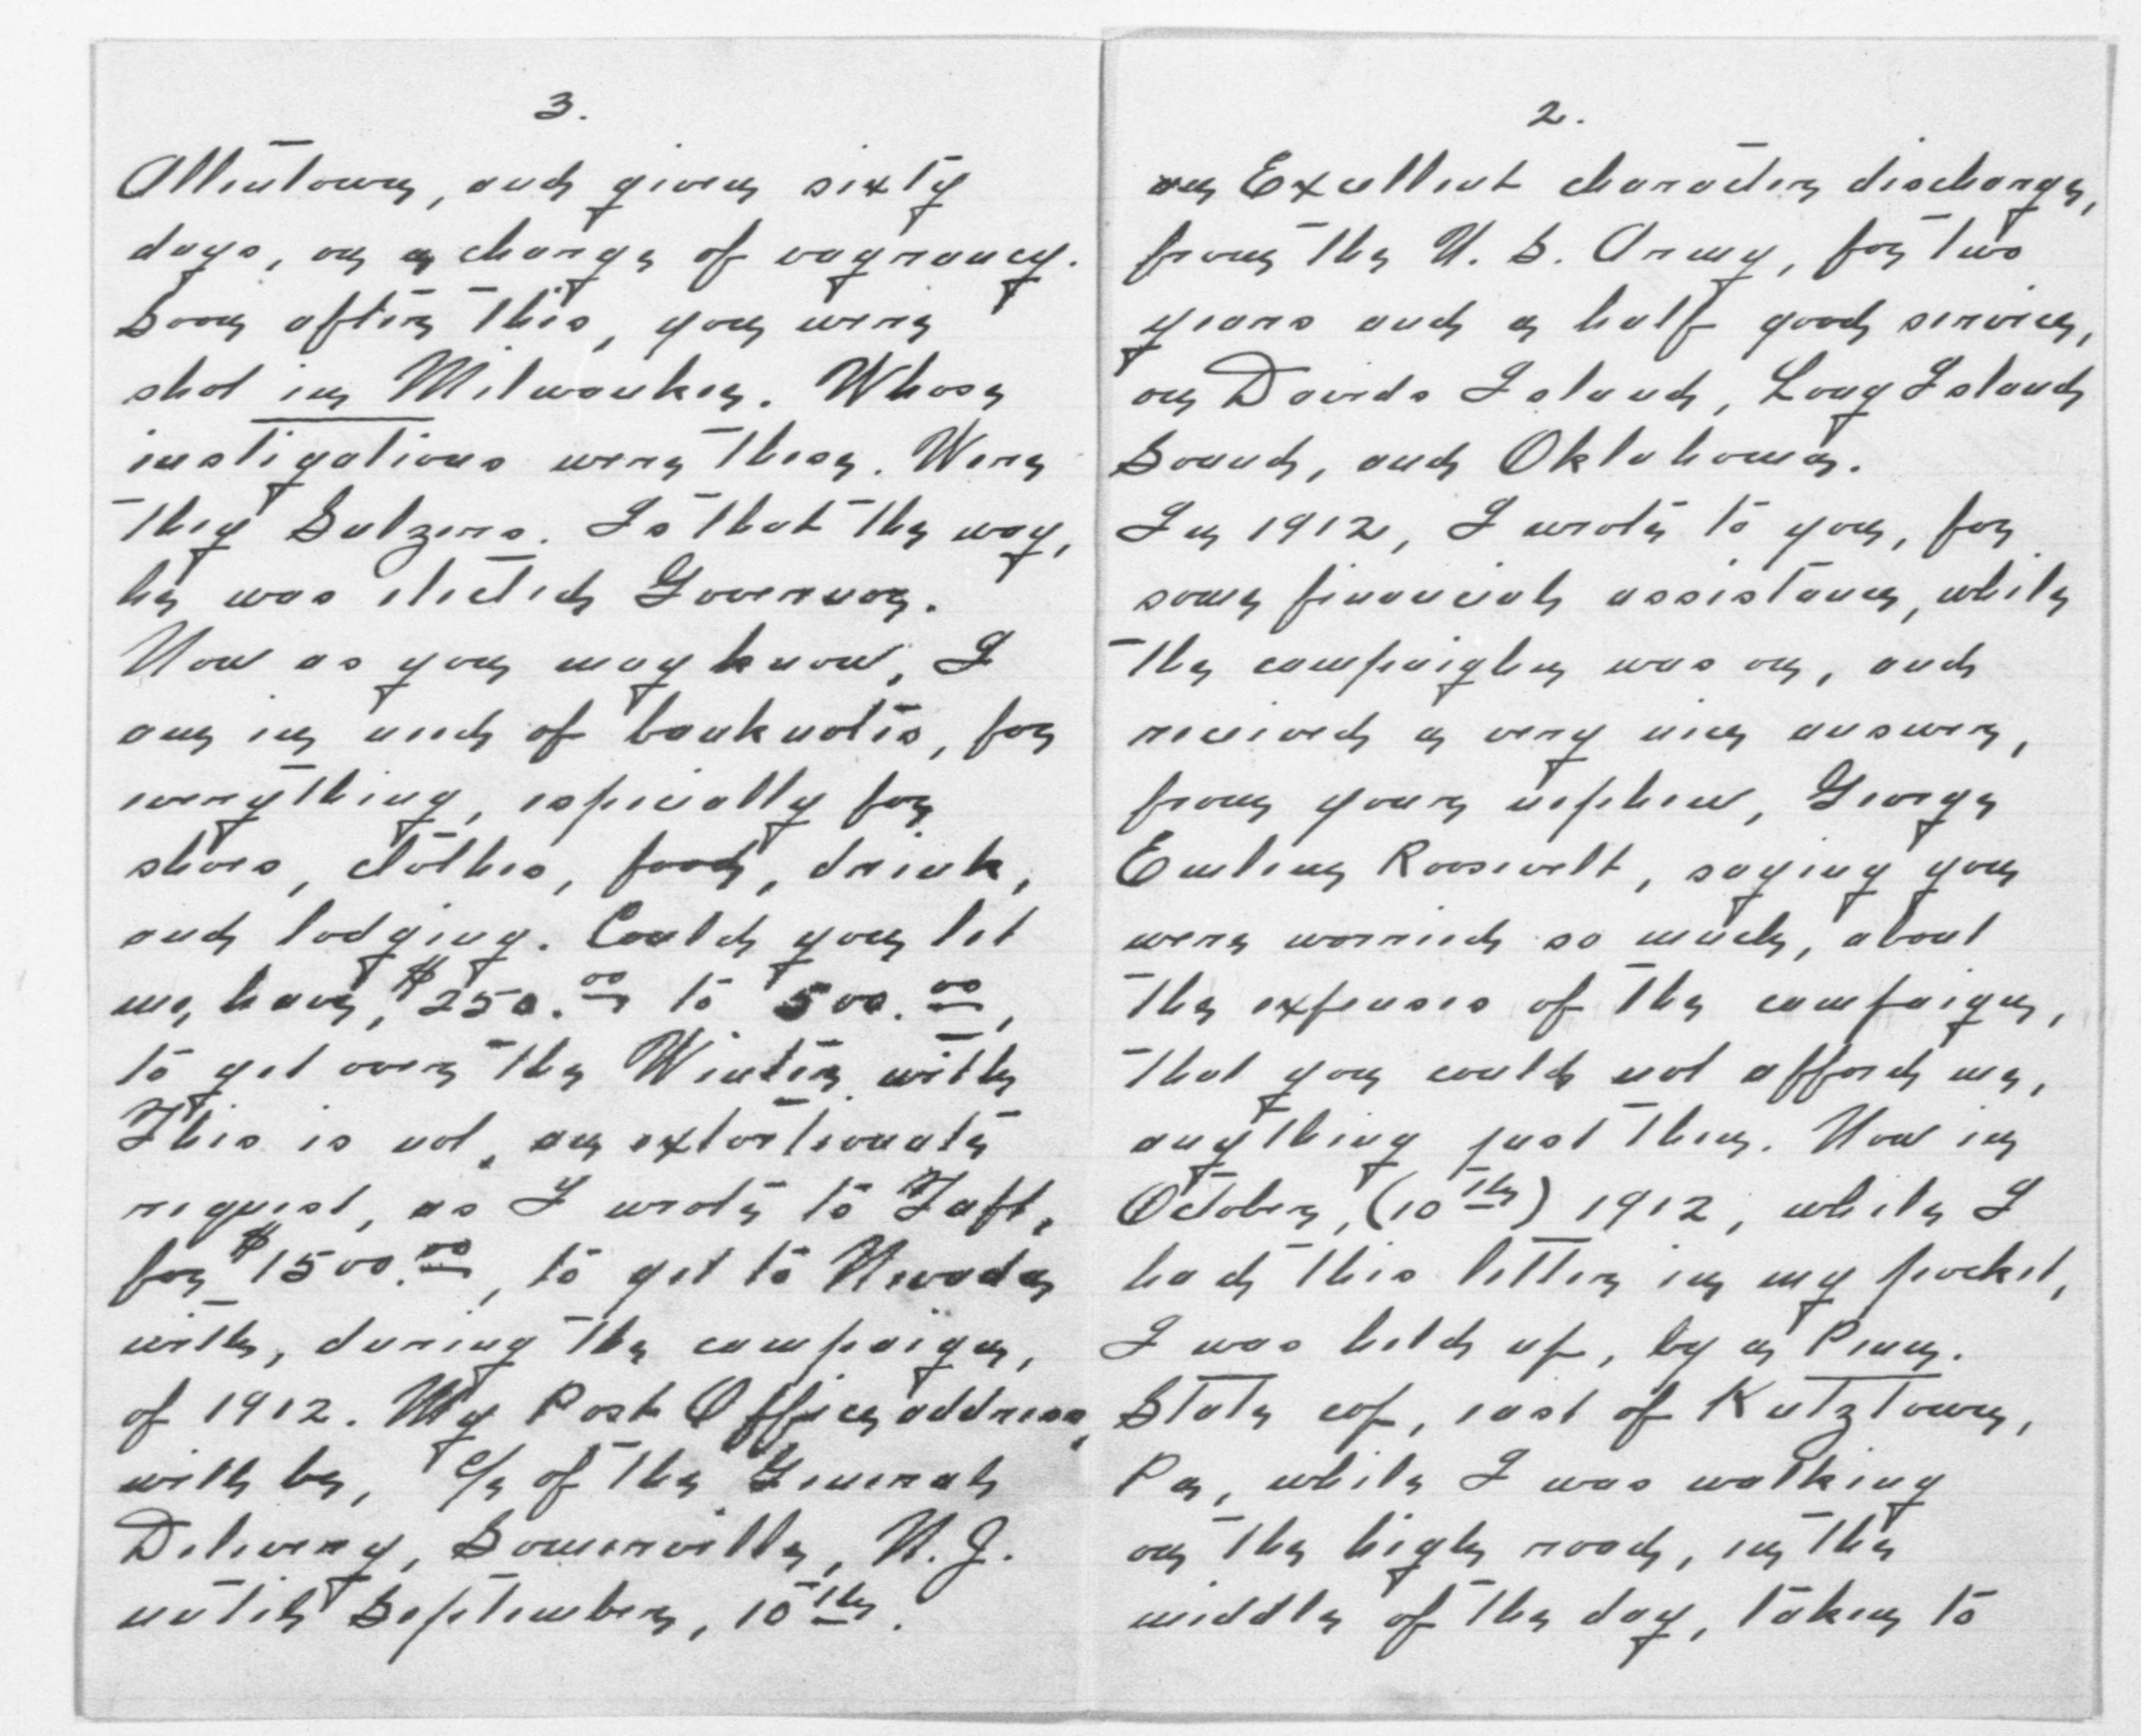 2.
an Excellent character discharge,
from the U. S. Army, for two
years and a half good service,
on Davids Island, Long Island
Sound, and Oklahoma.
In 1912, I wrote to you, for
some financial assistance, while
the campaighn was on, and
received a very nice answer,
from your nephew, George
Emlen Roosevelt, saying you
were worried so much, about
the expenses of the campaign,
that you could not afford me,
anything just then. Now in
October, (10th) 1912, while I
had this letter in my pocket,
I was held up, by a Penn.
State cop, east of Kutztown,
Pa, while I was walking
on the high road, in the
middle of the day, taken to
3.
Allentown, and given sixty
days, on a charge of vagrancy.
Soon after this, you were
shot in Milwaukee. Whose
instigations were these. Were
they Sulzers. Is that the way,
he was elected Governor.
Now as you may know, I
am in need of banknotes, for
everything, especially for
shoes, clothes, food, drink,
and lodging. Could you let
me, have, $250.00 to 500.00,
to get over the Winter with
This is not, an extortionate
request, as I wrote to Taft,
for $1500.00, to get to Nevada
with, during the campaign,
of 1912. My Post Office address,
will be, c/o of the General
Delivery, Somerville, N. J.
until September, 10th.